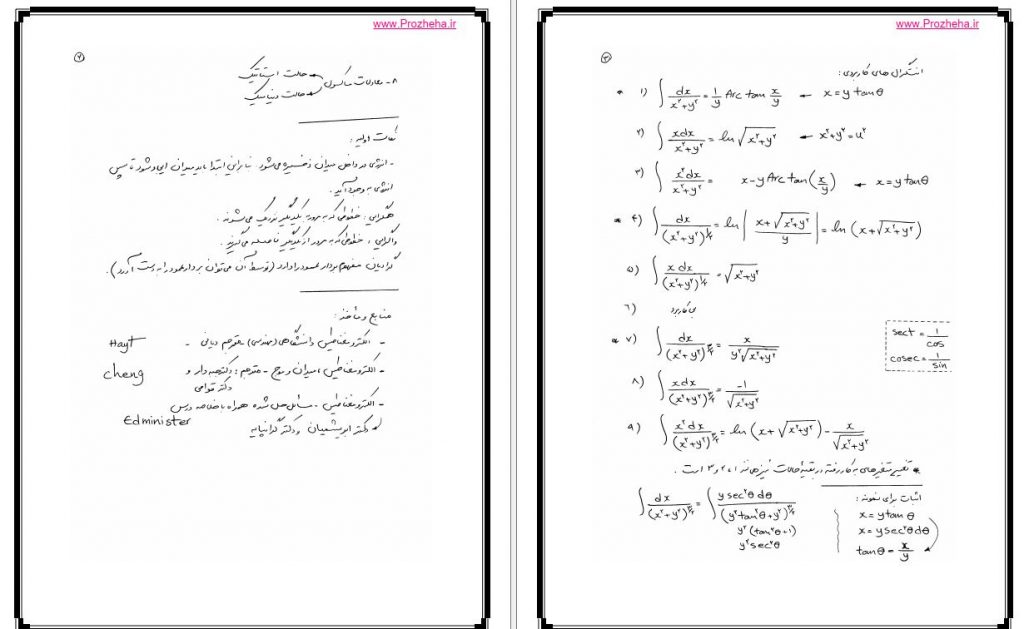 www.Prozheha.ir
۲
۸- معادلات ماکسول
حالت استاتیک
حالت دینامیک
نکات اولیه:
- انرژی در داخل میدان ذخیره می‌شود. بنابراین ابتدا باید میدان ایجاد شود تا سپس
انرژی به وجود آید.
همگرایی: خطوطی که به مرور به یکدیگر نزدیک می‌شوند.
واگرایی: خطوطی که به مرور از یکدیگر فاصله می‌گیرند.
گرادیان مفهوم بردار عمود را دارد (توسط آن می‌توان بردار عمود را به دست آورد).
منابع و مآخذ:
- الکترومغناطیس دانشگاهی (مهندسی) - مترجم دیانی - Hayt
- الکترومغناطیس، میدان و موج - مترجم: دکتر جبه‌دار و cheng
دکتر قوامی
- الکترومغناطیس - مسائل حل شده همراه با خلاصه درس Edminister
دکتر ابریشمیان و دکتر گرانپایه
www.Prozheha.ir
۳
انتگرال های کاربردی:
* ۱) ∫ dx/(x²+y²) = 1/y Arc tan x/y ← x = y tanθ
۲) ∫ xdx/(x²+y²) = ln √(x²+y²) ← x²+y² = u²
۳) ∫ x²dx/(x²+y²) = x - y Arc tan(x/y) ← x = y tanθ
* ۴) ∫ dx/(x²+y²)^½ = ln |(x+√(x²+y²))/y| = ln (x+√(x²+y²))
۵) ∫ x dx/(x²+y²)^½ = √(x²+y²)
۶) بی کاربرد
* ۷) ∫ dx/(x²+y²)^(3/2) = x/(y²√(x²+y²))
sect = 1/cos
cosec = 1/sin
۸) ∫ xdx/(x²+y²)^(3/2) = -1/√(x²+y²)
۹) ∫ x²dx/(x²+y²)^(3/2) = ln (x+√(x²+y²)) - x/√(x²+y²)
* تغییر متغیرهای به کار رفته در بقیه حالات نیز همانند ۱، ۲ و ۳ است.
اثبات برای نمونه:
∫ dx/(x²+y²)^(3/2) = ∫ y sec²θ dθ/(y²tan²θ+y²)^(3/2)
y²(tan²θ+1)
y²sec²θ
x = y tanθ
x = y sec²θ dθ
tanθ = x/y